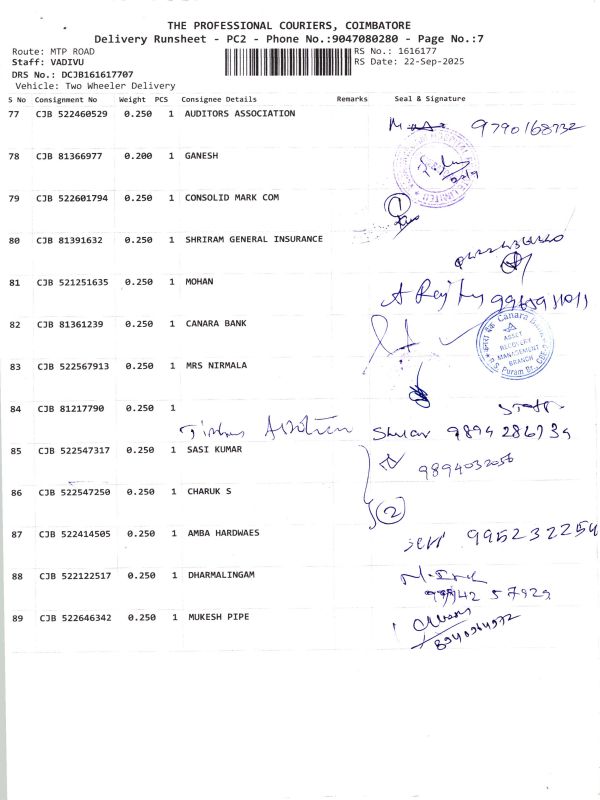 THE PROFESSIONAL COURIERS, COIMBATORE
Delivery Runsheet - PC2 - Phone No.:9047080280 - Page No.:7
Route: MTP ROAD
RS No.: 1616177
Staff: VADIVU
RS Date: 22-Sep-2025
DRS No.: DCJB161617707
Vehicle: Two Wheeler Delivery
S No Consignment No Weight PCS Consignee Details Remarks Seal & Signature
77 CJB 522460529 0.250 1 AUDITORS ASSOCIATION
9790168732
78 CJB 81366977 0.200 1 GANESH
79 CJB 522601794 0.250 1 CONSOLID MARK COM
1
80 CJB 81391632 0.250 1 SHRIRAM GENERAL INSURANCE
81 CJB 521251635 0.250 1 MOHAN
82 CJB 81361239 0.250 1 CANARA BANK
Canara Bank
ASSET
RECOVERY
MANAGEMENT
BRANCH
83 CJB 522567913 0.250 1 MRS NIRMALA
84 CJB 81217790 0.250 1
85 CJB 522547317 0.250 1 SASI KUMAR
86 CJB 522547250 0.250 1 CHARUK S
2
87 CJB 522414505 0.250 1 AMBA HARDWAES
9952322254
88 CJB 522122517 0.250 1 DHARMALINGAM
89 CJB 522646342 0.250 1 MUKESH PIPE